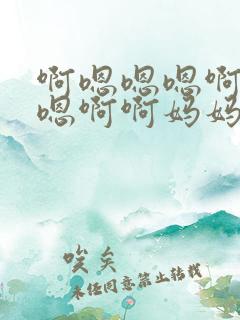 啊嗯嗯嗯啊
嗯啊啊妈妈
唉矣
未经同意禁止转载